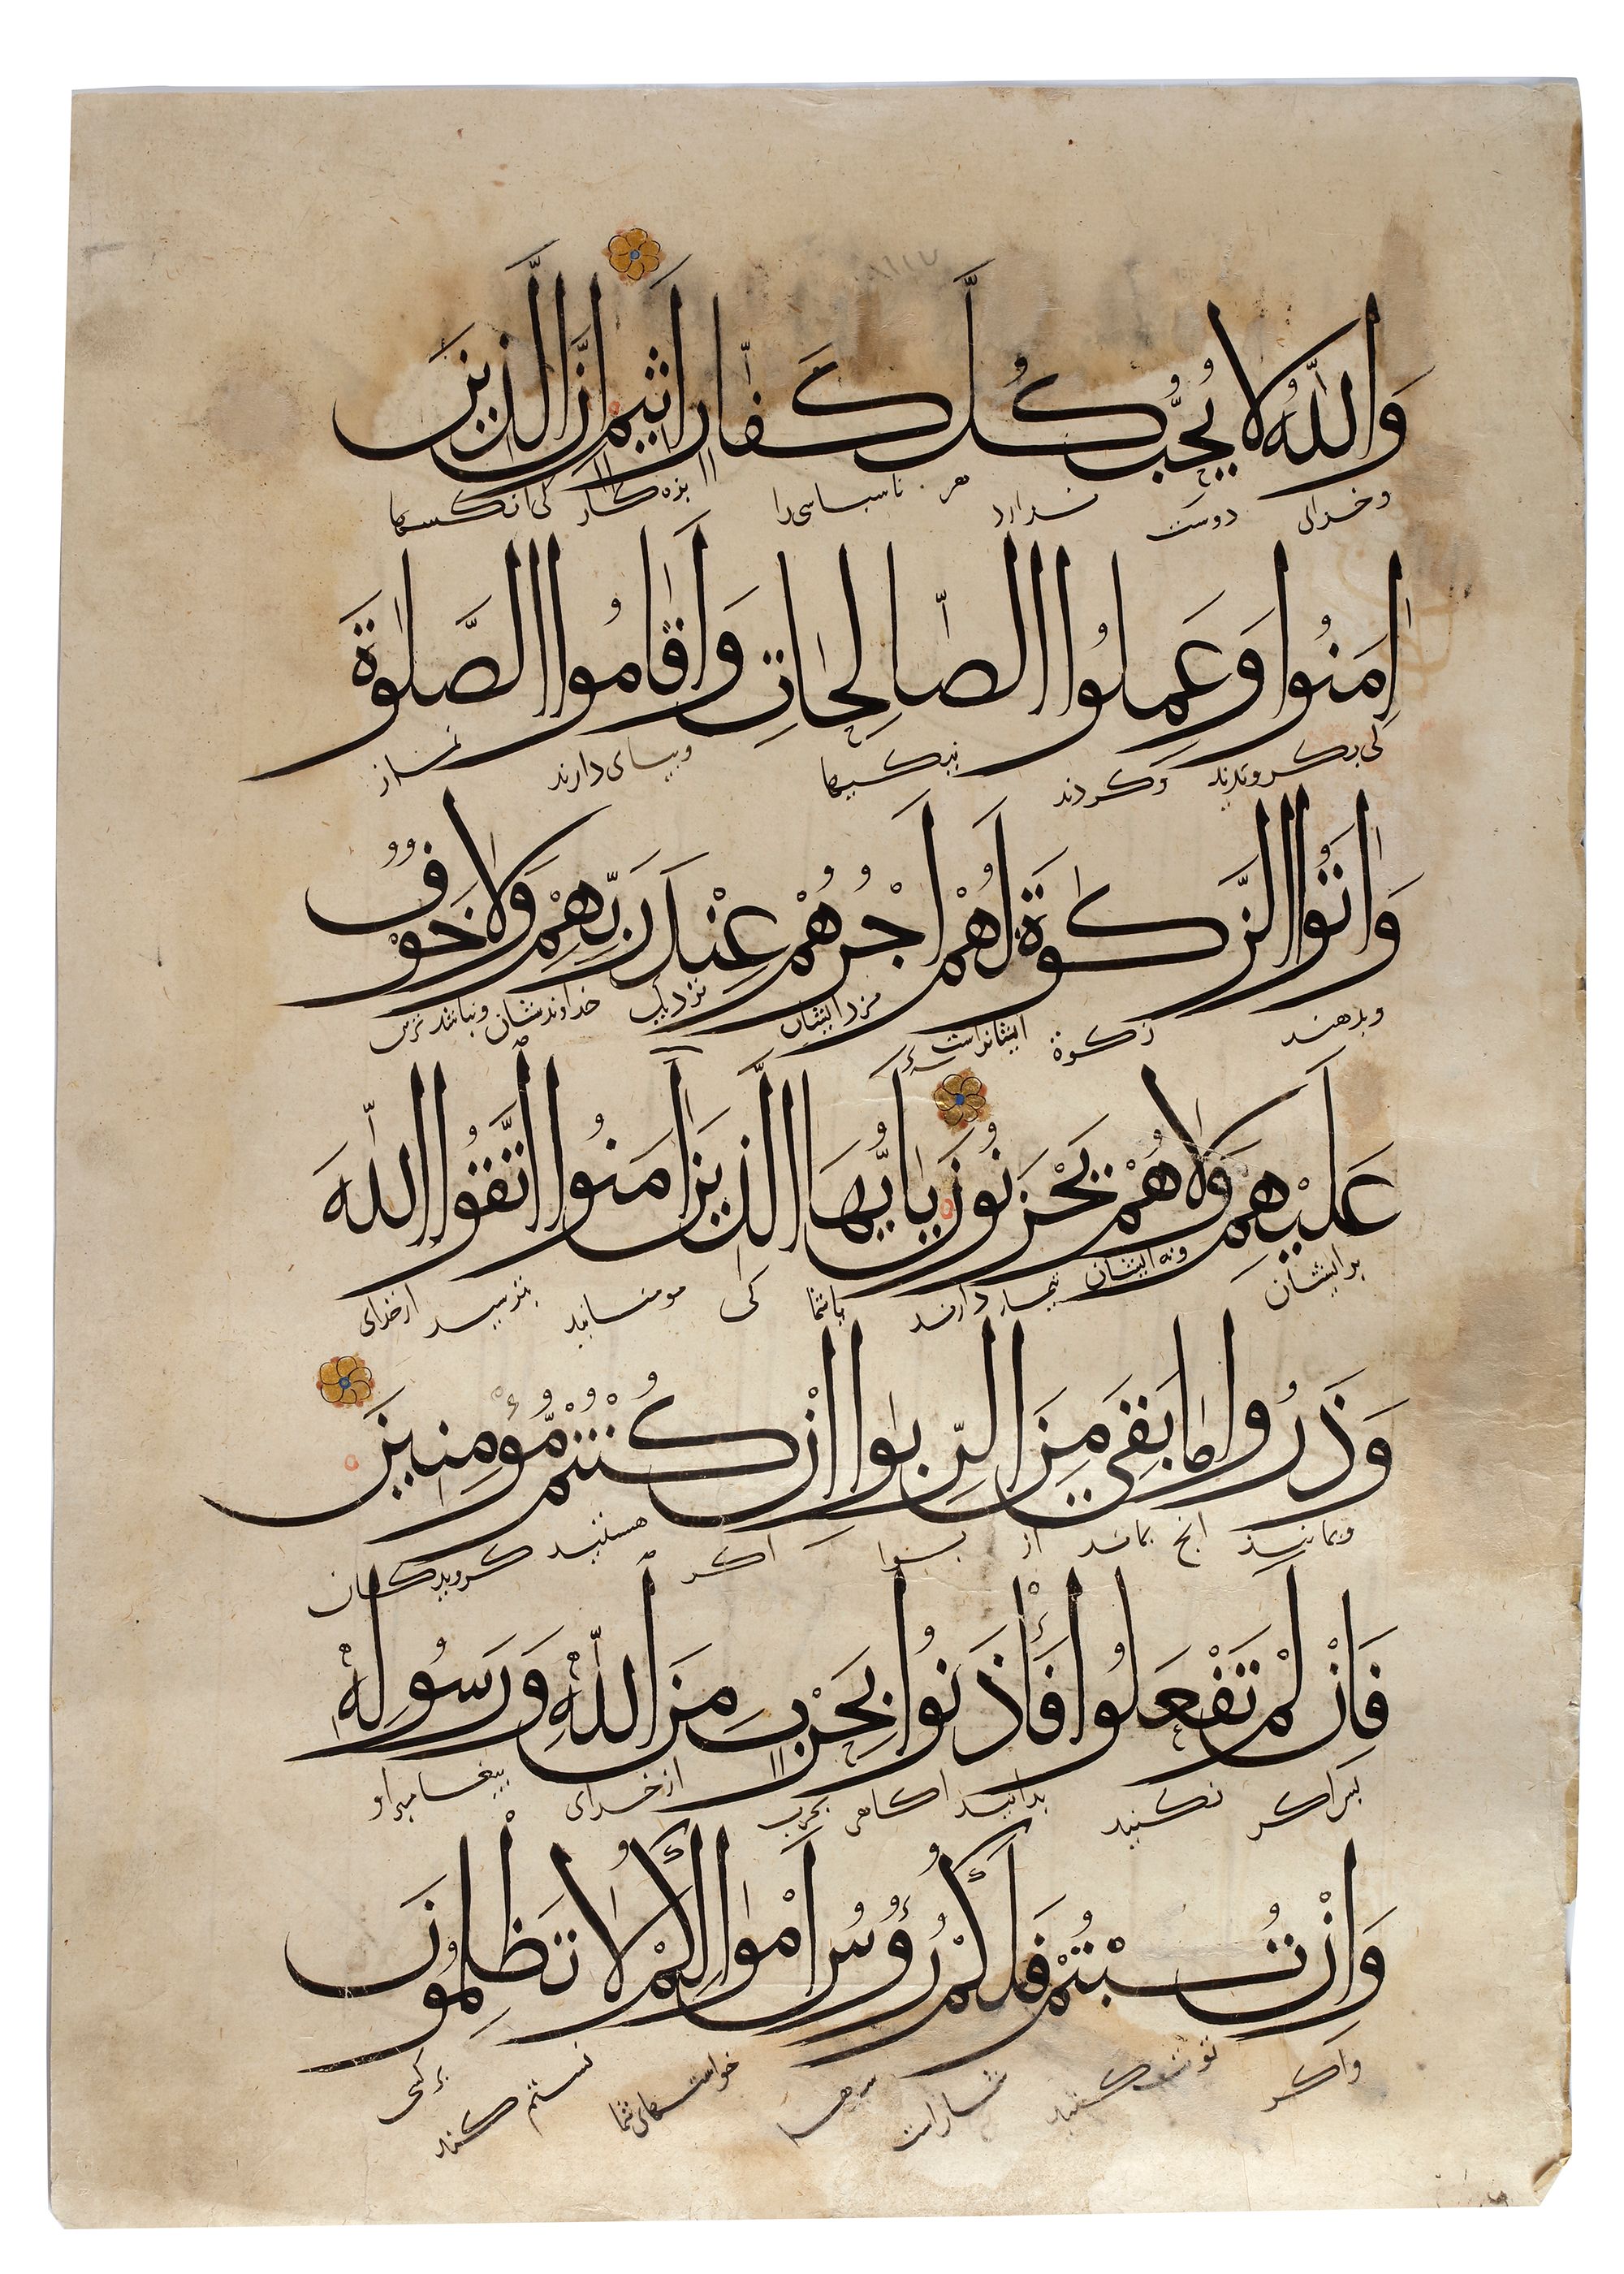 وَاللّٰهُ لَا يُحِبُّ كُلَّ كَفّٰارٍ اَثٖيمٍ اِنَّ الَّذٖينَ
وخدای دوست ندارد هر ناسپاسی را بزه کار کی آنکسها
اٰمَنُوا وَعَمِلُوا الصّٰالِحٰاتِ وَاَقٰامُوا الصَّلٰوةَ
کی بکرویدند وکردند نیکیها وبپای دارند نماز
وَاٰتَوُا الزَّكٰوةَ لَهُمْ اَجْرُهُمْ عِنْدَ رَبِّهِمْ وَلٰا خَوْفٌ
وبدهند زکوة ایشانراست مزد ایشان نزدیک خداوندشان ونباشد ترس
عَلَيْهِمْ وَلٰا هُمْ يَحْزَنُونَ يٰا اَيُّهَا الَّذٖينَ اٰمَنُوا اتَّقُوا اللّٰهَ
بر ایشان ونه ایشان تیمار دارند یا شما کی مومنانید بترسید از خدای
وَذَرُوا مٰا بَقِيَ مِنَ الرِّبٰوا اِنْ كُنْتُمْ مُؤْمِنٖينَ
وبمانید انج بماند از اکر هستید کرویدکان
فَاِنْ لَمْ تَفْعَلُوا فَأْذَنُوا بِحَرْبٍ مِنَ اللّٰهِ وَرَسُولِهٖ
پس اکر نکنید بدانید اکاهی بحرب از خدای پیغامبر او
وَاِنْ تُبْتُمْ فَلَكُمْ رُؤُسُ اَمْوٰالِكُمْ لٰا تَظْلِمُونَ
واکر توبت کنید شماراست سرها خواستهای شما نستم کنید بر کسی